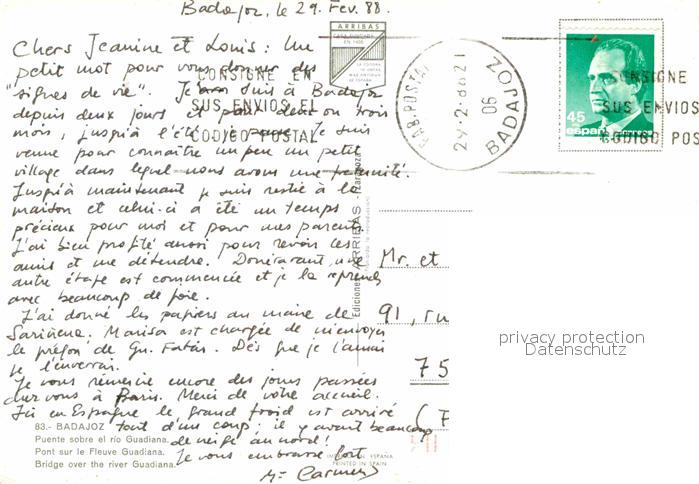 Badajoz, le 29. Fev. 88.
Chers Jeanine et Louis: Un
petit mot pour vous donner des
"signes de vie". Je suis à Badajoz
depuis deux jours et pour deux ou trois
mois, jusqu'à l'été. Je suis
venue pour connaître un peu un petit
village dans lequel nous avons une fraternité.
Jusqu'à maintenant je suis restée à la
maison et celui-ci a été un temps
précieux pour moi et pour mes parents.
J'ai bien profité aussi pour revoir les
amis et me détendre. Dorénavant, une
autre étape est commencée et je la reprends
avec beaucoup de joie.
J'ai donné les papiers au maire de
Sariñena. Marisa est chargée de m'envoyer
le prégón de Gn. Fatás. Dès que je l'aurai
je l'enverrai.
Je vous remercie encore des jours passés
chez vous à Paris. Merci de votre accueil.
Ici en Espagne le grand froid est arrivé
tout d'un coup; il y avait beaucoup
de neige au nord!
Je vous embrasse fort
Mª Carmen
ARRIBAS
CASA FUNDADA
CONSIGNE EN
SUS ENVIOS EL
CODIGO POSTAL
CAB. POSTAL
29-2-88 21
06
BADAJOZ
45
españa
CONSIGNE
SUS ENVIOS
CODIGO POS
Ediciones ARRIBAS - Zaragoza
Mr. et
91, ru
75
(F
privacy protection
Datenschutz
83.- BADAJOZ
Puente sobre el río Guadiana.
Pont sur le Fleuve Guadiana.
Bridge over the river Guadiana.
PRINTED IN SPAIN